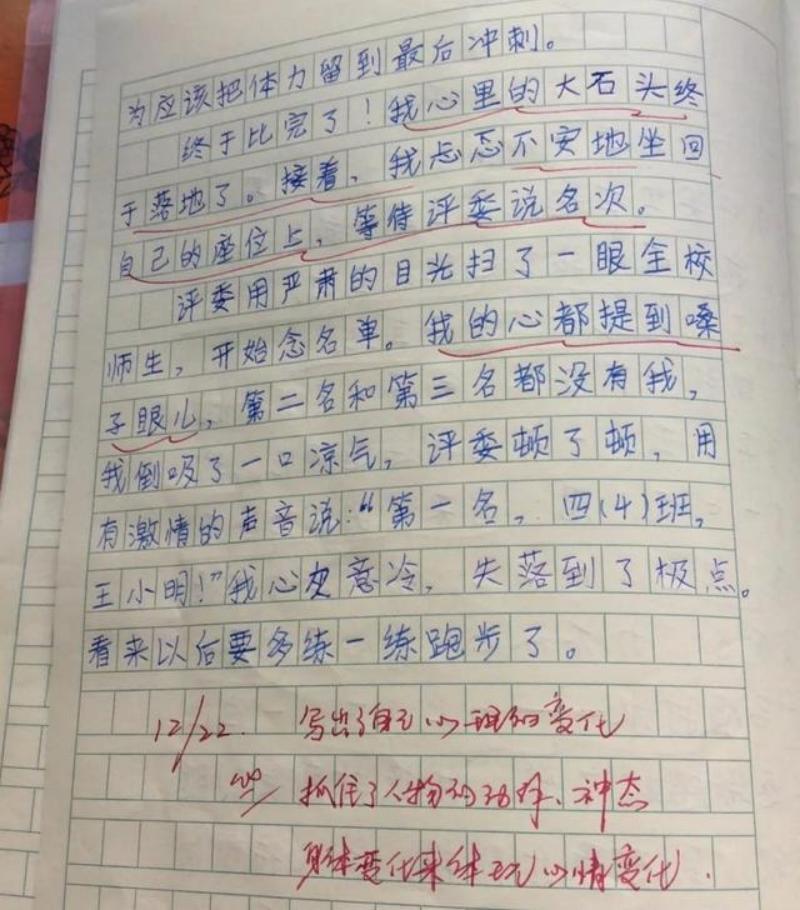 为应该把体力留到最后冲刺。
终于比完了！我心里的大石头终
于落地了。接着，我忐忑不安地坐回
自己的座位上，等待评委说名次。
评委用严肃的目光扫了一眼全校
师生，开始念名单。我的心都提到嗓
子眼儿，第二名和第三名都没有我，
我倒吸了一口凉气，评委顿了顿，用
有激情的声音说：“第一名，四（4）班，
王小明！”我心灰意冷，失落到了极点。
看来以后要多练一练跑步了。
12/22 写出了自己心理的变化
抓住了人物的动作、神态
身体变化来体现心情变化.